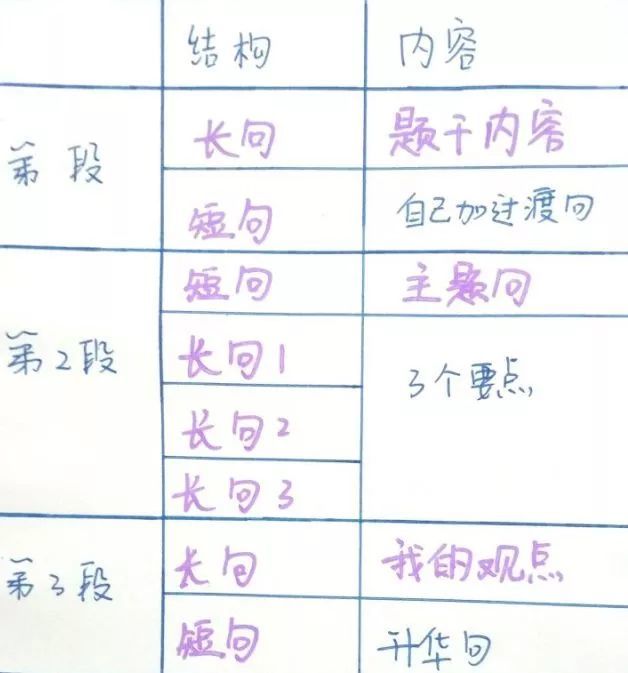 结构 内容
第 段 长句 题干内容
短句 自己加过渡句
第2段 短句 主题句
长句1 3个要点
长句2
长句3
第3段 长句 我的观点
短句 升华句